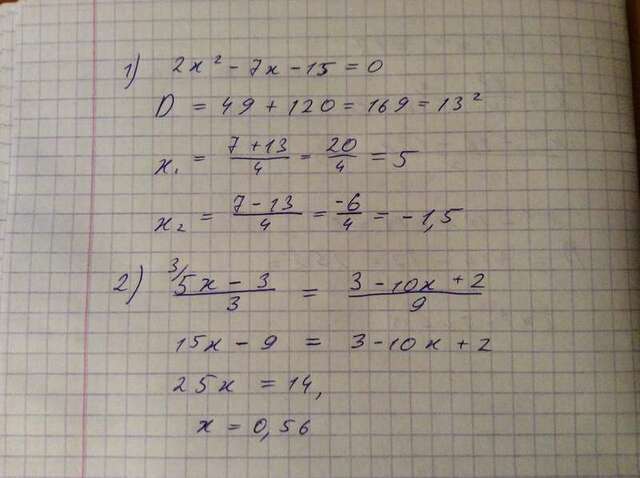 1) 2x² - 7x - 15 = 0
D = 49 + 120 = 169 = 13²
x₁ = (7 + 13)/4 = 20/4 = 5
x₂ = (7 - 13)/4 = -6/4 = -1,5
2) ³⁄ (5x - 3)/3 = (3 - 10x + 2)/9
15x - 9 = 3 - 10x + 2
25x = 14,
x = 0,56